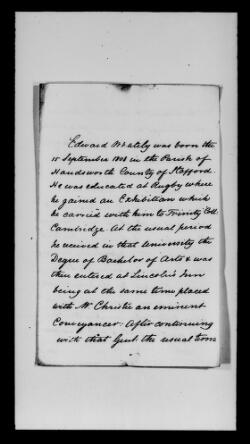 Edward Whately was born the
15 September 1808 in the Parish of
Handsworth County of Stafford.
He was educated at Rugby where
he gained an Exhibition which
he carried with him to Trinity Coll
Cambridge. At the usual period
he received in that University the
Degree of Bachelor of Arts & was
then entered at Lincoln's Inn
being at the same time placed
with Mr Christie an eminent
Conveyancer. After continuing
with that Gent. the usual term